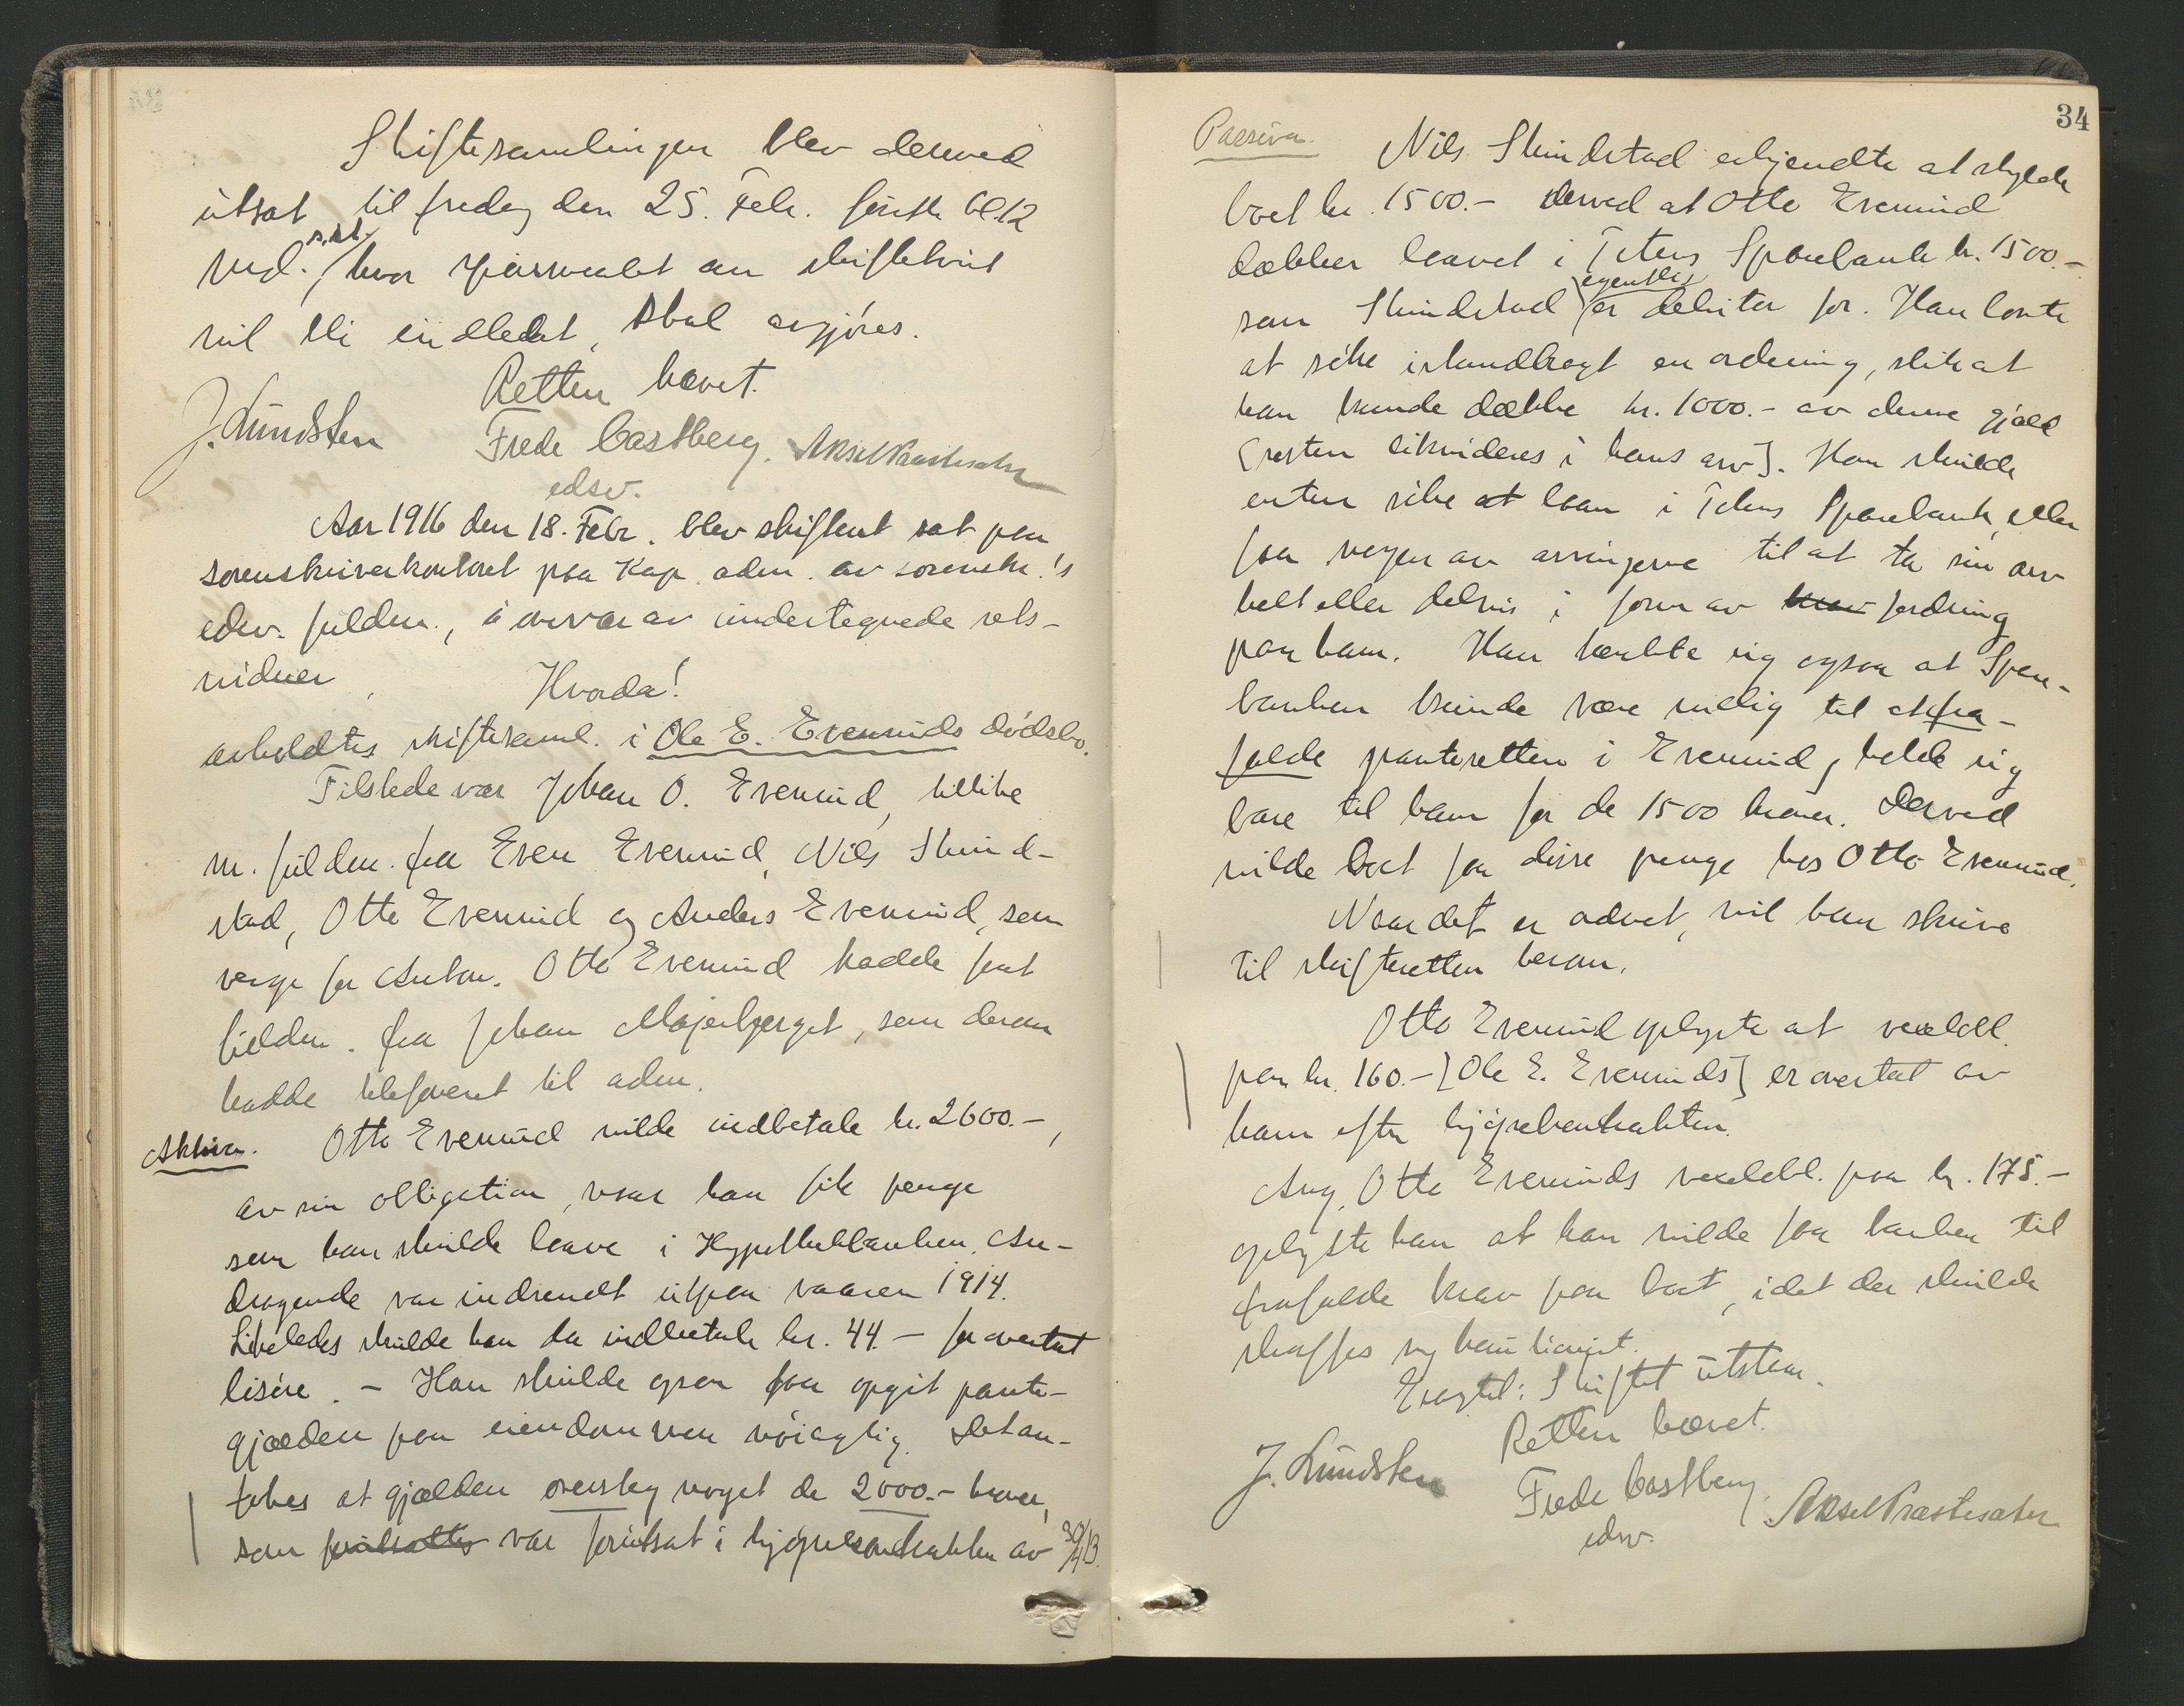 Skiftesamlingen blev derved
utsat til fredag den 25. Febr. førstk. kl. 12
md. s.st. hvor spørsmaalet om skiftetvist
vil bli indledet, skal avgjøres.
Retten hævet.
J. Lundsten Frede Castberg. Aksel Præstesæter
edsv.
Aar 1916 den 18. Febr. blev skifteret sat paa
sorenskriverkontoret paa Kap, adm. av sorenskr.'s
edsv. fuldm., i nærvær av undertegnede rets-
vidner. Hvorda!
avholdtes skiftesaml. i Ole E. Evenruds dødsbo.
Tilstede var Johan O. Evenrud, tillike
m. fuldm. fra Even Evenrud, Nils Skind-
stad, Otto Evenrud og Anders Evenrud, som
verge for Anton. Otto Evenrud hadde faat
fuldm. fra Johan Majerbjerget, som derom
hadde telefonert til adm.
Aktiva. Otto Evenrud vilde indbetale kr. 2600.-,
av sin obligation, naar han fik penge
som han skulde laane i Hypothekbanken. An-
dragende var indsendt utpaa vaaren 1914.
Likeledes skulde han da indbetale kr. 44.- for overtat
løsøre. - Han skulde ogsaa faa opgit pante-
gjælden paa eiendommen nøiagtig. Det an-
tokes at gjælden oversteg noget de 2000.- kroner,
som forutsattes var forutsat i kjøpekontrakten av 30/4 13.
34
Passiva. Nils Skindstad erkjendte at skylde
boet kr. 1500.- derved at Otto Evenrud
dækker laanet i Totens Sparebank kr. 1500.-
som Skindstad egentlig er debitor for. Han lovte
at søke istandbragt en ordning, slik at
han kunde dække kr. 1000.- av denne gjæld
(resten likvideres i hans arv). Han skulde
enten søke at laan i Totens Sparebank, eller
faa nogen av arvingerne til at ta sin arv
helt eller delvis i form av krav fordring
paa ham. Han tænkte sig ogsaa at Spare-
banken kunde være villig til at fra-
falde panteretten i Evenrud, holde sig
bare til ham for de 1500 kroner. Derved
vilde boet faa disse penge hos Otto Evenrud.
Naar det er ordnet, vil han skrive
til skifteretten herom.
Otto Evenrud oplyste at vexelobl.
paa kr. 160.- [Ole E. Evenruds] er overtat av
ham efter kjøpekontrakten.
Ang. Otto Evenruds vexelobl. paa kr. 175.-
oplyste han at han vilde faa banken til
frafalde krav paa boet, idet der skulde
skaffes ny kautionist.
Eragtet: Skiftet utstaar.
Retten hævet.
J. Lundsten Frede Castberg. Aksel Præstesæter
edsv.